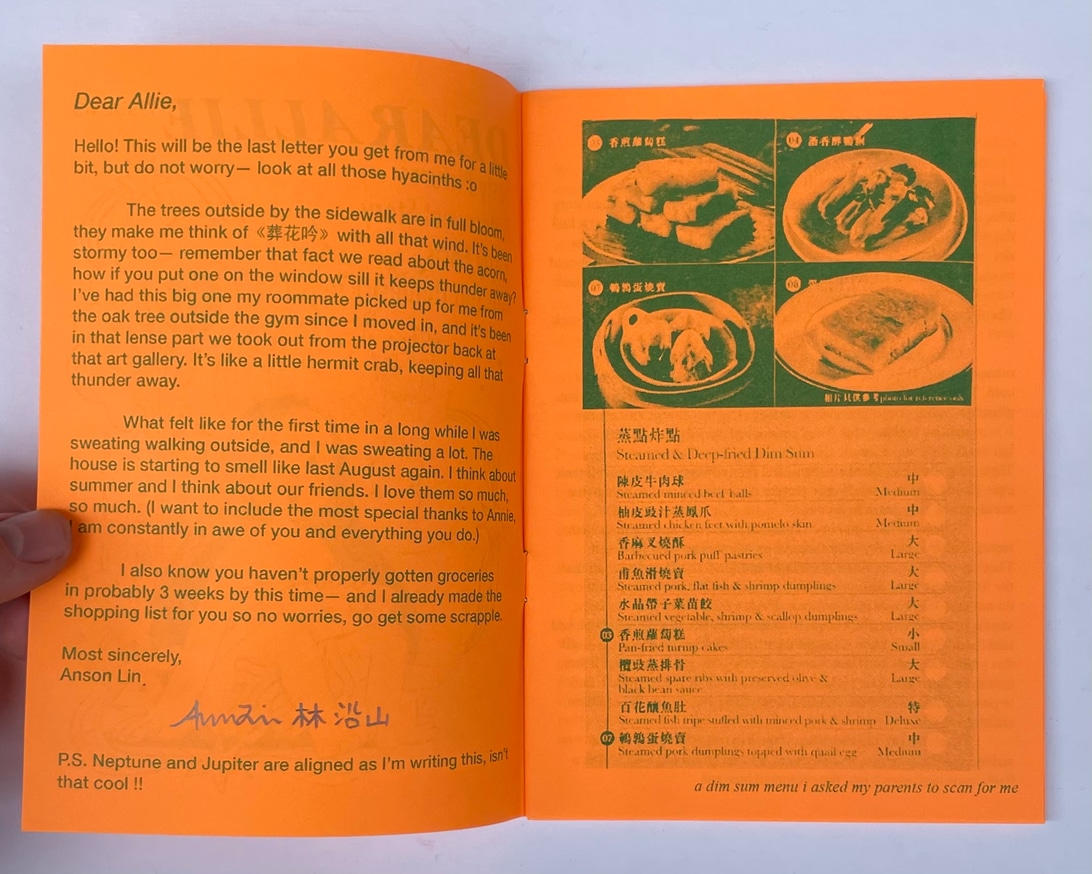 Dear Allie,
Hello! This will be the last letter you get from me for a little
bit, but do not worry— look at all those hyacinths :o
The trees outside by the sidewalk are in full bloom,
they make me think of 《葬花吟》 with all that wind. It's been
stormy too— remember that fact we read about the acorn,
how if you put one on the window sill it keeps thunder away?
I've had this big one my roommate picked up for me from
the oak tree outside the gym since I moved in, and it's been
in that lense part we took out from the projector back at
that art gallery. It's like a little hermit crab, keeping all that
thunder away.
What felt like for the first time in a long while I was
sweating walking outside, and I was sweating a lot. The
house is starting to smell like last August again. I think about
summer and I think about our friends. I love them so much,
so much. (I want to include the most special thanks to Annie,
I am constantly in awe of you and everything you do.)
I also know you haven't properly gotten groceries
in probably 3 weeks by this time— and I already made the
shopping list for you so no worries, go get some scrapple.
Most sincerely,
Anson Lin
林沿山
P.S. Neptune and Jupiter are aligned as I'm writing this, isn't
that cool !!
03 香煎蘿蔔糕
04
07 鵪鶉蛋燒賣
08
相片只供參考 photo for reference only
蒸點炸點
Steamed & Deep-fried Dim Sum
陳皮牛肉球 中
Steamed minced beef balls Medium
柚皮豉汁蒸鳳爪 中
Steamed chicken feet with pomelo skin Medium
香麻叉燒酥 大
Barbecued pork puff pastries Large
甫魚滑燒賣 大
Steamed pork, flat fish & shrimp dumplings Large
水晶帶子菜苗餃 大
Steamed vegetable, shrimp & scallop dumplings Large
03 香煎蘿蔔糕 小
Pan-fried turnip cakes Small
欖豉蒸排骨 大
Steamed spare ribs with preserved olive & Large
black bean sauce
百花釀魚肚 特
Steamed fish tripe stuffed with minced pork & shrimp Deluxe
07 鵪鶉蛋燒賣 中
Steamed pork dumplings topped with quail egg Medium
a dim sum menu i asked my parents to scan for me